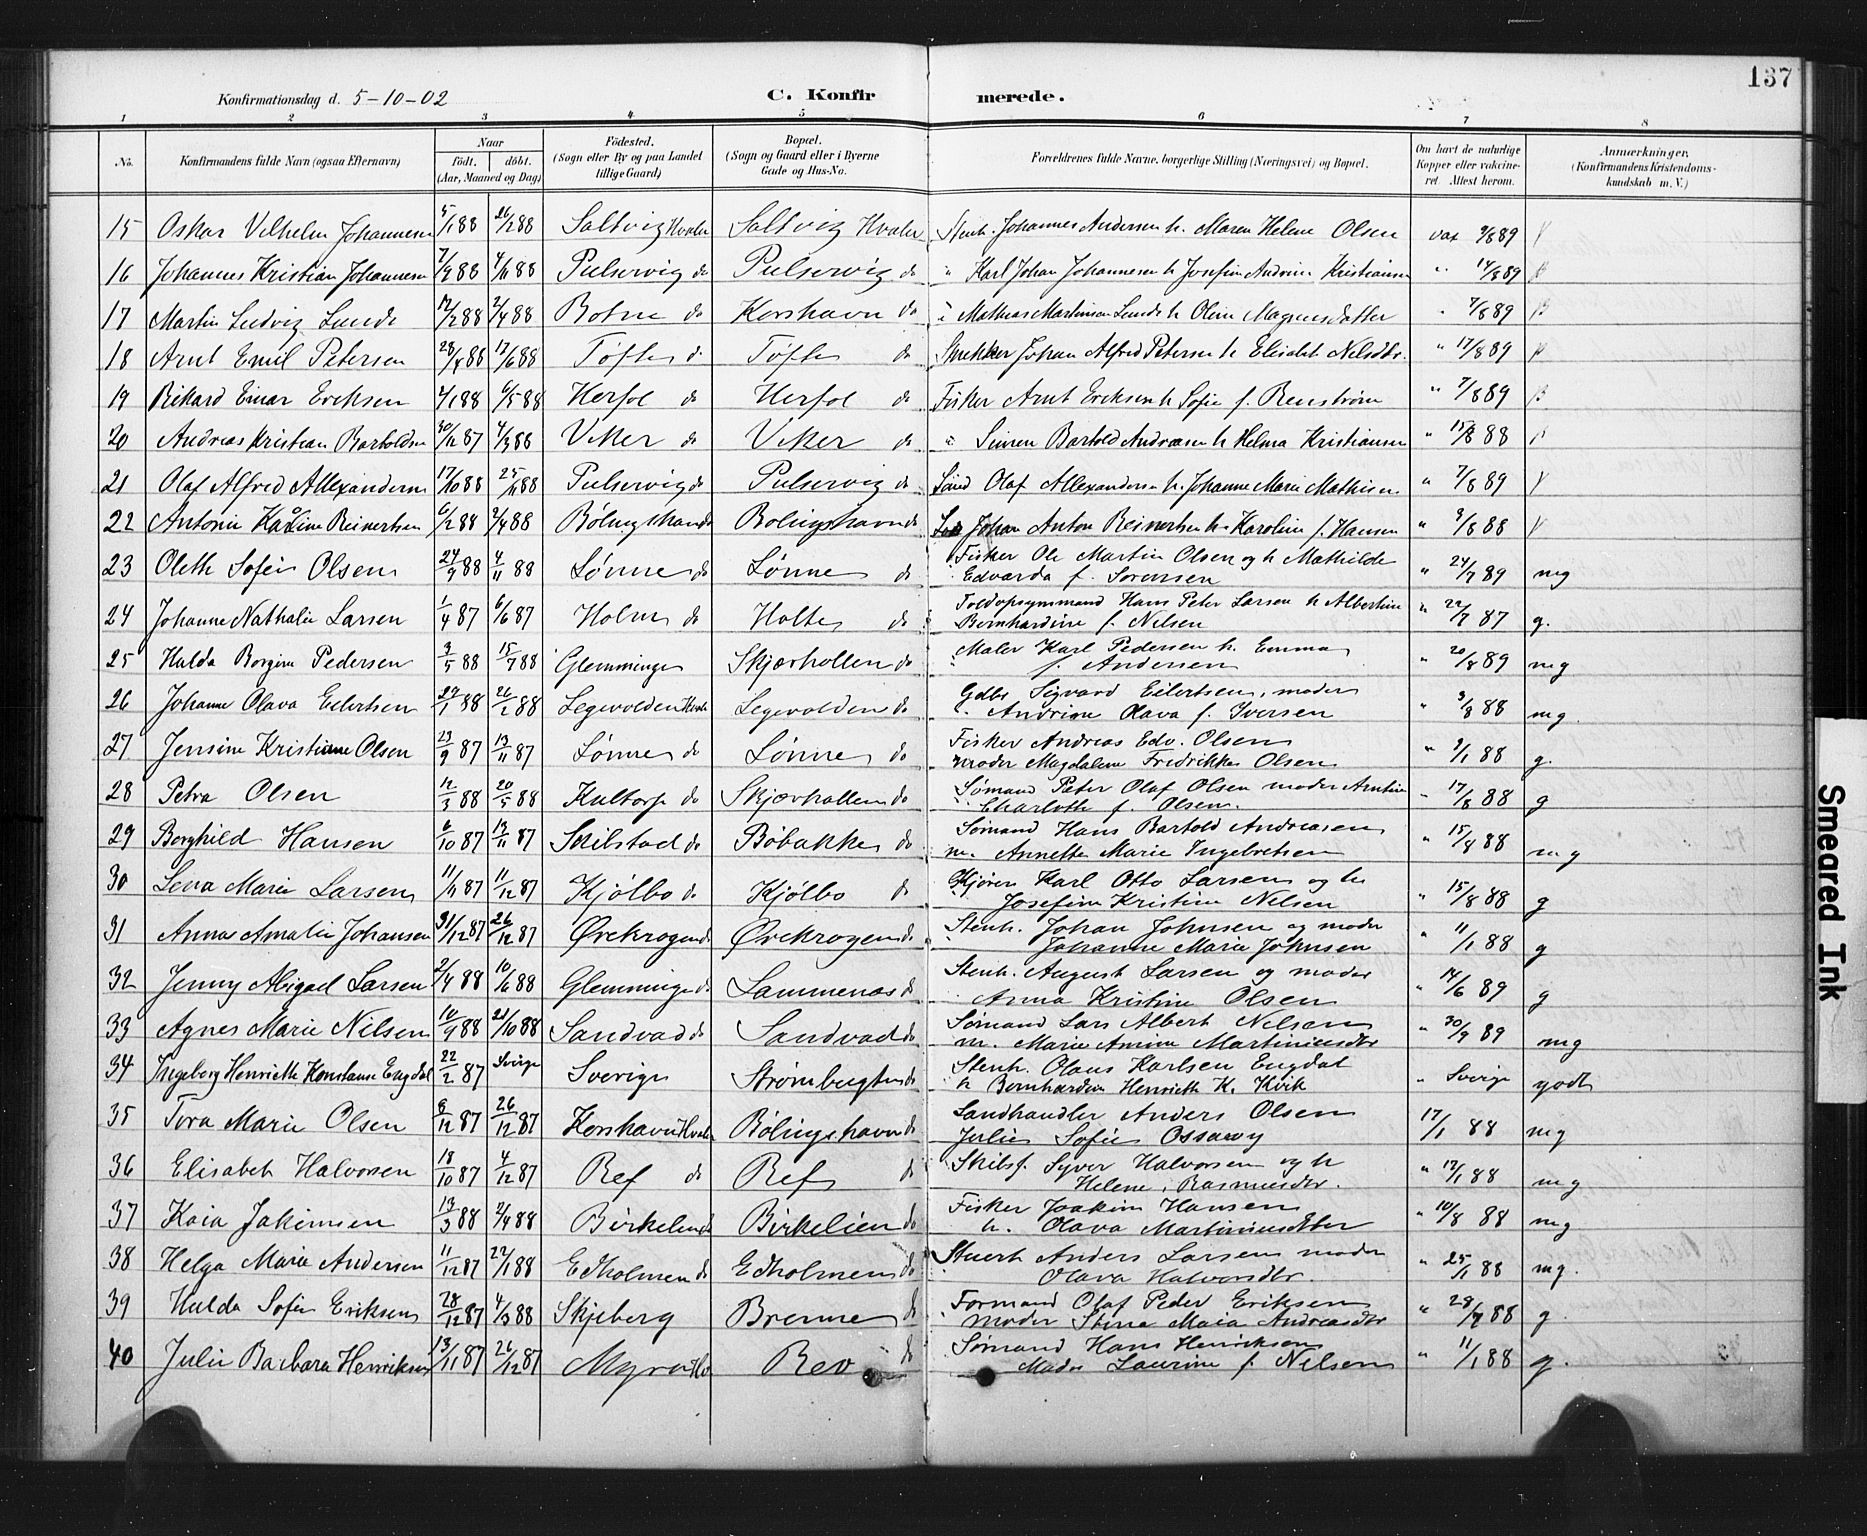 137
Konfirmationsdag d. 5-10-02 C. Konfirmerede.
1 2 3 4 5 6 7 8
No. Konfirmandens fulde Navn (ogsaa Efternavn) Naar født. døbt. (Aar, Maaned og Dag) Fødested. (Sogn eller By og paa Landet tillige Gaard) Bopæl. (Sogn og Gaard eller i Byerne Gade og Hus-No. Forældrenes fulde Navne, borgerlige Stilling (Næringsvei) og Bopæl. Om havt de naturlige Kopper eller vakcineret. Attest herom. Anmærkninger, (Konfirmandens Kristendomskundskab m. V.)
15 Oskar Vilhelm Johannesen 5/1 88 26/2 88 Saltvig Hvaler Saltvig Hvaler Stenh. Johannes Andersen h. Maren Helene Olsen vax 9/8 89
16 Johannes Kristian Johannesen 7/9 88 4/11 88 Pulservig do Pulservig do " Karl Johan Johannesen h Josefine Andrine Kristiansen " 14/8 89
17 Martin Ludvig Lunde 12/2 88 2/4 88 Botne do Korshavn do " Mathias Martinsen Lunde h Oline Magnusdatter " 7/8 89
18 Arnt Emil Petersen 28/4 88 17/6 88 Tøfte do Tøfte do Snekker Johan Alfred Petersen h Elisabet Nilsdtr. " 17/8 89
19 Rikard Einar Eriksen 4/1 88 6/5 88 Herføl do Herføl do Fisker Arnt Eriksen h Sofie f. Renstrøm " 7/8 89
20 Andreas Kristian Bartoldsen 30/12 87 4/3 88 Viker do Viker do " Simen Bartold Andreasen h Helma Kristiansen " 15/8 88
21 Olaf Alfred Allexandersen 17/10 88 25/11 88 Pulservig do Pulservig do Olaf Allexandersen h. Johanne Marie Mathisen " 7/8 89
22 Antonie Karline Reinertsen 6/2 88 2/4 88 Bølingshavn do Bolingshavn do Johan Anton Reinertsen h Karoline f. Hansen " 9/8 88
23 Oleth Sofie Olsen 24/9 88 4/11 88 Lønne do Lønne do Fisker Ole Martin Olsen og h Mathilde Edvarda f. Sorensen " 24/7 89 mg
24 Johanne Nathalie Larsen 1/4 87 6/6 87 Holm do Holte do Toldopsynmand Hans Peter Larsen h Albertine Bernhardine f. Nilsen " 22/7 87 g.
25 Halda Borgine Pedersen 3/5 88 15/7 88 Glemminge Skjærhollen do Maler Karl Pedersen h. Emma f. Andersen " 20/8 89 mg
26 Johanne Olava Eilertsen 29/1 88 26/2 88 Legevolden Hvaler Legevolden do Gdbr Sigvard Eilertsen, moder Andrine Olava f. Iversen " 3/8 88 mg.
27 Jensine Kristiane Olsen 23/9 87 13/11 87 Lønne do Lønne do Fisker Andreas Edv. Olsen moder Magdalene Fredrikke Olsen " 9/1 88 g.
28 Petra Olsen 12/3 88 20/5 88 Kultorp do Skjærhollen do Sømand Peter Olaf Olsen moder Charlotte f. Olsen. " 17/8 88 g
29 Borghild Hansen 6/10 87 13/11 87 Skilstad do Bøbakke do Sømand Hans Bartold Andreasen m. Annette Marie Ingebretsen " 15/8 88 mg
30 Lena Marie Larsen 11/11 87 11/12 87 Kjølbo do Kjølbo do Karl Otto Larsen og h Josefine Kristine Nilsen " 15/8 88 g
31 Anna Amalie Johansen 31/12 87 26/12 87 Ørekrogen do Ørekrogen do Stenh. Johan Johnsen og moder Johanne Marie Johnsen " 11/1 88 g
32 Jenny Abigael Larsen 2/4 88 10/6 88 Glemminge do Lammenæs do Stenh. August Larsen og moder Anna Kristine Olsen " 14/6 89 g
33 Agnes Marie Nilsen 10/9 88 21/10 88 Sandvad do Sandvad do Sømand Lars Albert Nilsen m. Marie Amine Martiniusdtr " 30/9 89 mg
34 Ingeborg Henriette Konstanse Engdal 22/2 87 Sverige Sverige Strømbugten do Stenh. Olaus Karlsen Engdal h Bernhardine Henriette K. Kvik " Sverige godt
35 Tora Marie Olsen 8/12 87 26/12 87 Korshavn Hvaler Bølingshavn do Landhandler Anders Olsen Julie Sofie 17/1 88 mg
36 Elisabet Halvorsen 18/10 87 4/12 87 Ref do Ref do Skibsf. Syver Halvorsen og h Helene Rasmusdtr. " 17/1 88 mg
37 Kaia Jakimsen 13/3 88 2/4 88 Birkelien do Birkelien do Fisker Joakim Hansen h. Olava Martiniusdtr " 10/8 88 mg
38 Helga Marie Andersen 11/12 87 22/1 88 Edholmen do Edholmen do Stuert Anders Larsen moder Olava Halvorsdtr. " 25/1 88 mg.
39 Hulda Sofie Eriksen 28/12 87 4/3 88 Skjeberg Brenne do Formand Olaf Peder Eriksen moder Stine Maia Andreasdtr " 28/7 88 g.
40 Julie Barbara Henriksen 13/11 87 26/12 87 Myra Hv Rev do Sømand Hans Henriksen Moder Laurine f. Nilsen " 11/1 88 g.
Smeared Ink